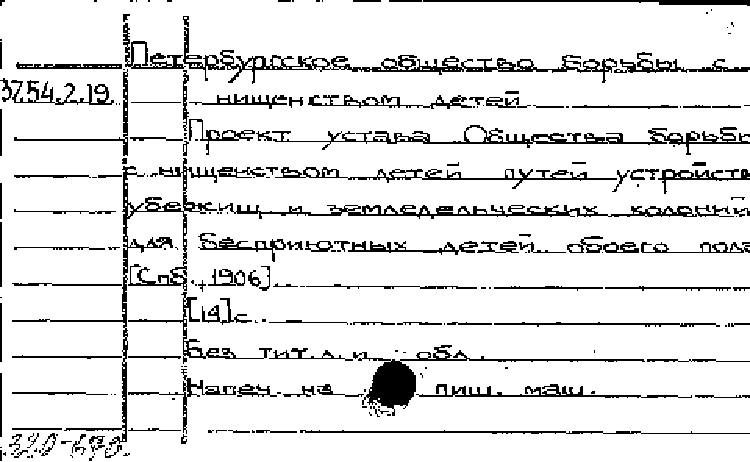 Петербургское общество борьбы с
37.54.2.19. нищенством детей
Проект устава Общества борьбы
с нищенством детей путей устройств
убежищ и земледельческих колоний
для бесприютных детей обоего пола
[Спб., 1906]
[14]с.
Без тит.л. и обл.
Напеч. на пиш. маш.
320-690.